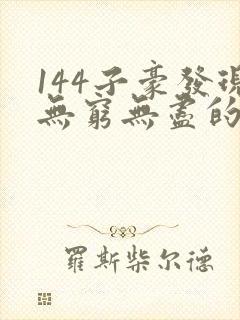 144子豪發現
無窮無盡的
羅斯柴尔德